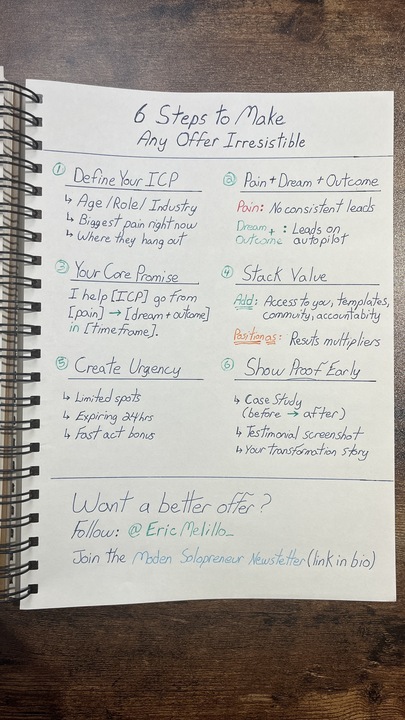 6 Steps to Make
Any Offer Irresistible
① Define Your ICP
↳ Age/Role/Industry
↳ Biggest pain right now
↳ Where they hang out
② Pain + Dream + Outcome
Pain: No consistent leads
Dream + : Leads on
Outcome autopilot
③ Your Core Promise
I help [ICP] go from
[pain] → [dream + outcome]
in [timeframe].
④ Stack Value
Add: Access to you, templates,
commuity, accountabity
Position as: Results multipliers
⑤ Create Urgency
↳ Limited spots
↳ Expiring 24hrs
↳ Fast act bonus
⑥ Show Proof Early
↳ Case Study
(before → after)
↳ Testimonial screenshot
↳ Your transformation story
Want a better offer?
Follow: @EricMelillo_
Join the Moden Solopreneur Newsletter (link in bio)